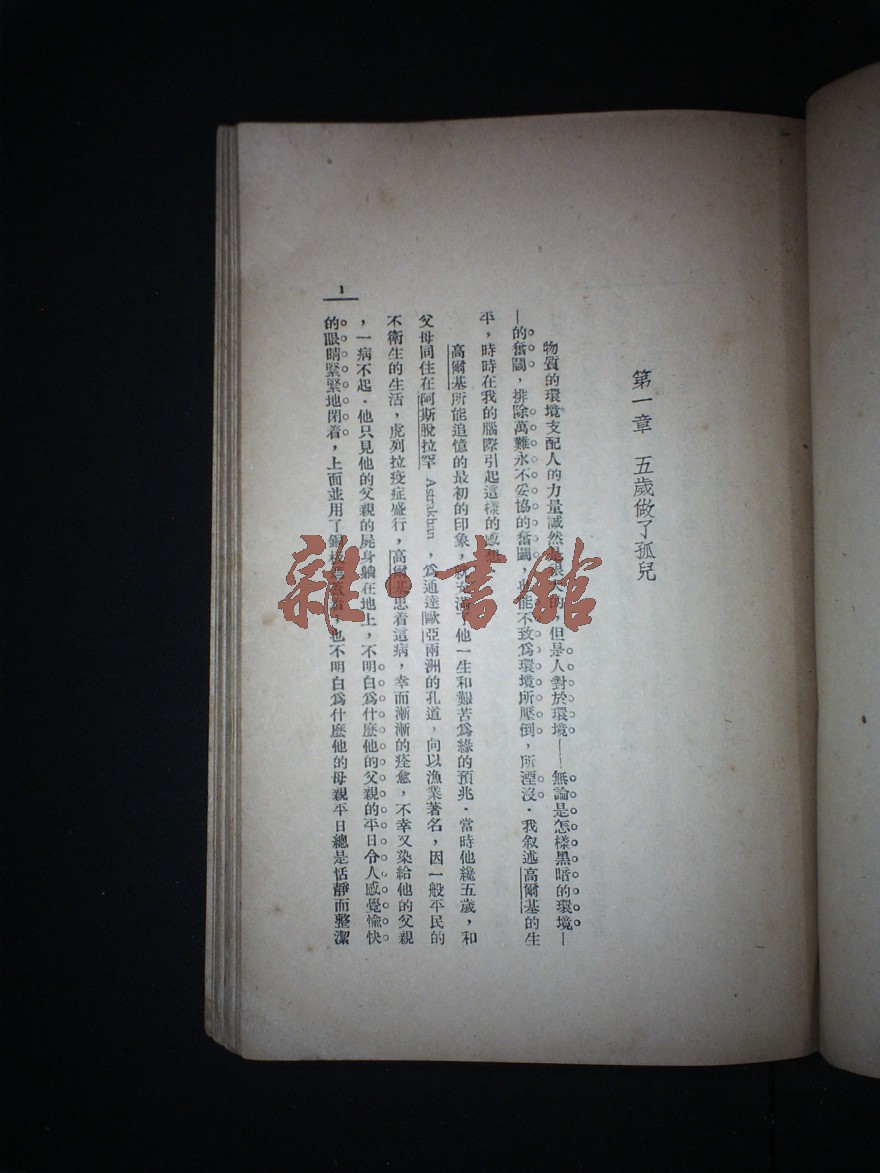 第一章 五歲做了孤兒
物質的環境支配人的力量誠然是很大的，但是人對於環境——無論是怎樣黑暗的環境—
—的奮鬭，排除萬難永不妥協的奮鬭，能不致爲環境所壓倒，所湮沒．我叙述高爾基的生
平，時時在我的腦際引起這樣的感想
高爾基所能追憶的最初的印象，他一生和艱苦爲緣的預兆．當時他纔五歲，和
父母同住在阿斯脫拉罕 Astrakhan，爲通達歐亞兩洲的孔道，向以漁業著名，因一般平民的
不衛生的生活，虎列拉疫症盛行，高爾基患着這病，幸而漸漸的痊愈，不幸又染給他的父親
，一病不起．他只見他的父親的屍身躺在地上，不明白爲什麼他的父親的平日令人感覺愉快
的眼睛緊緊地閉着，上面並用了，也不明白爲什麼他的母親平日總是恬靜而整潔
1
雜·書館